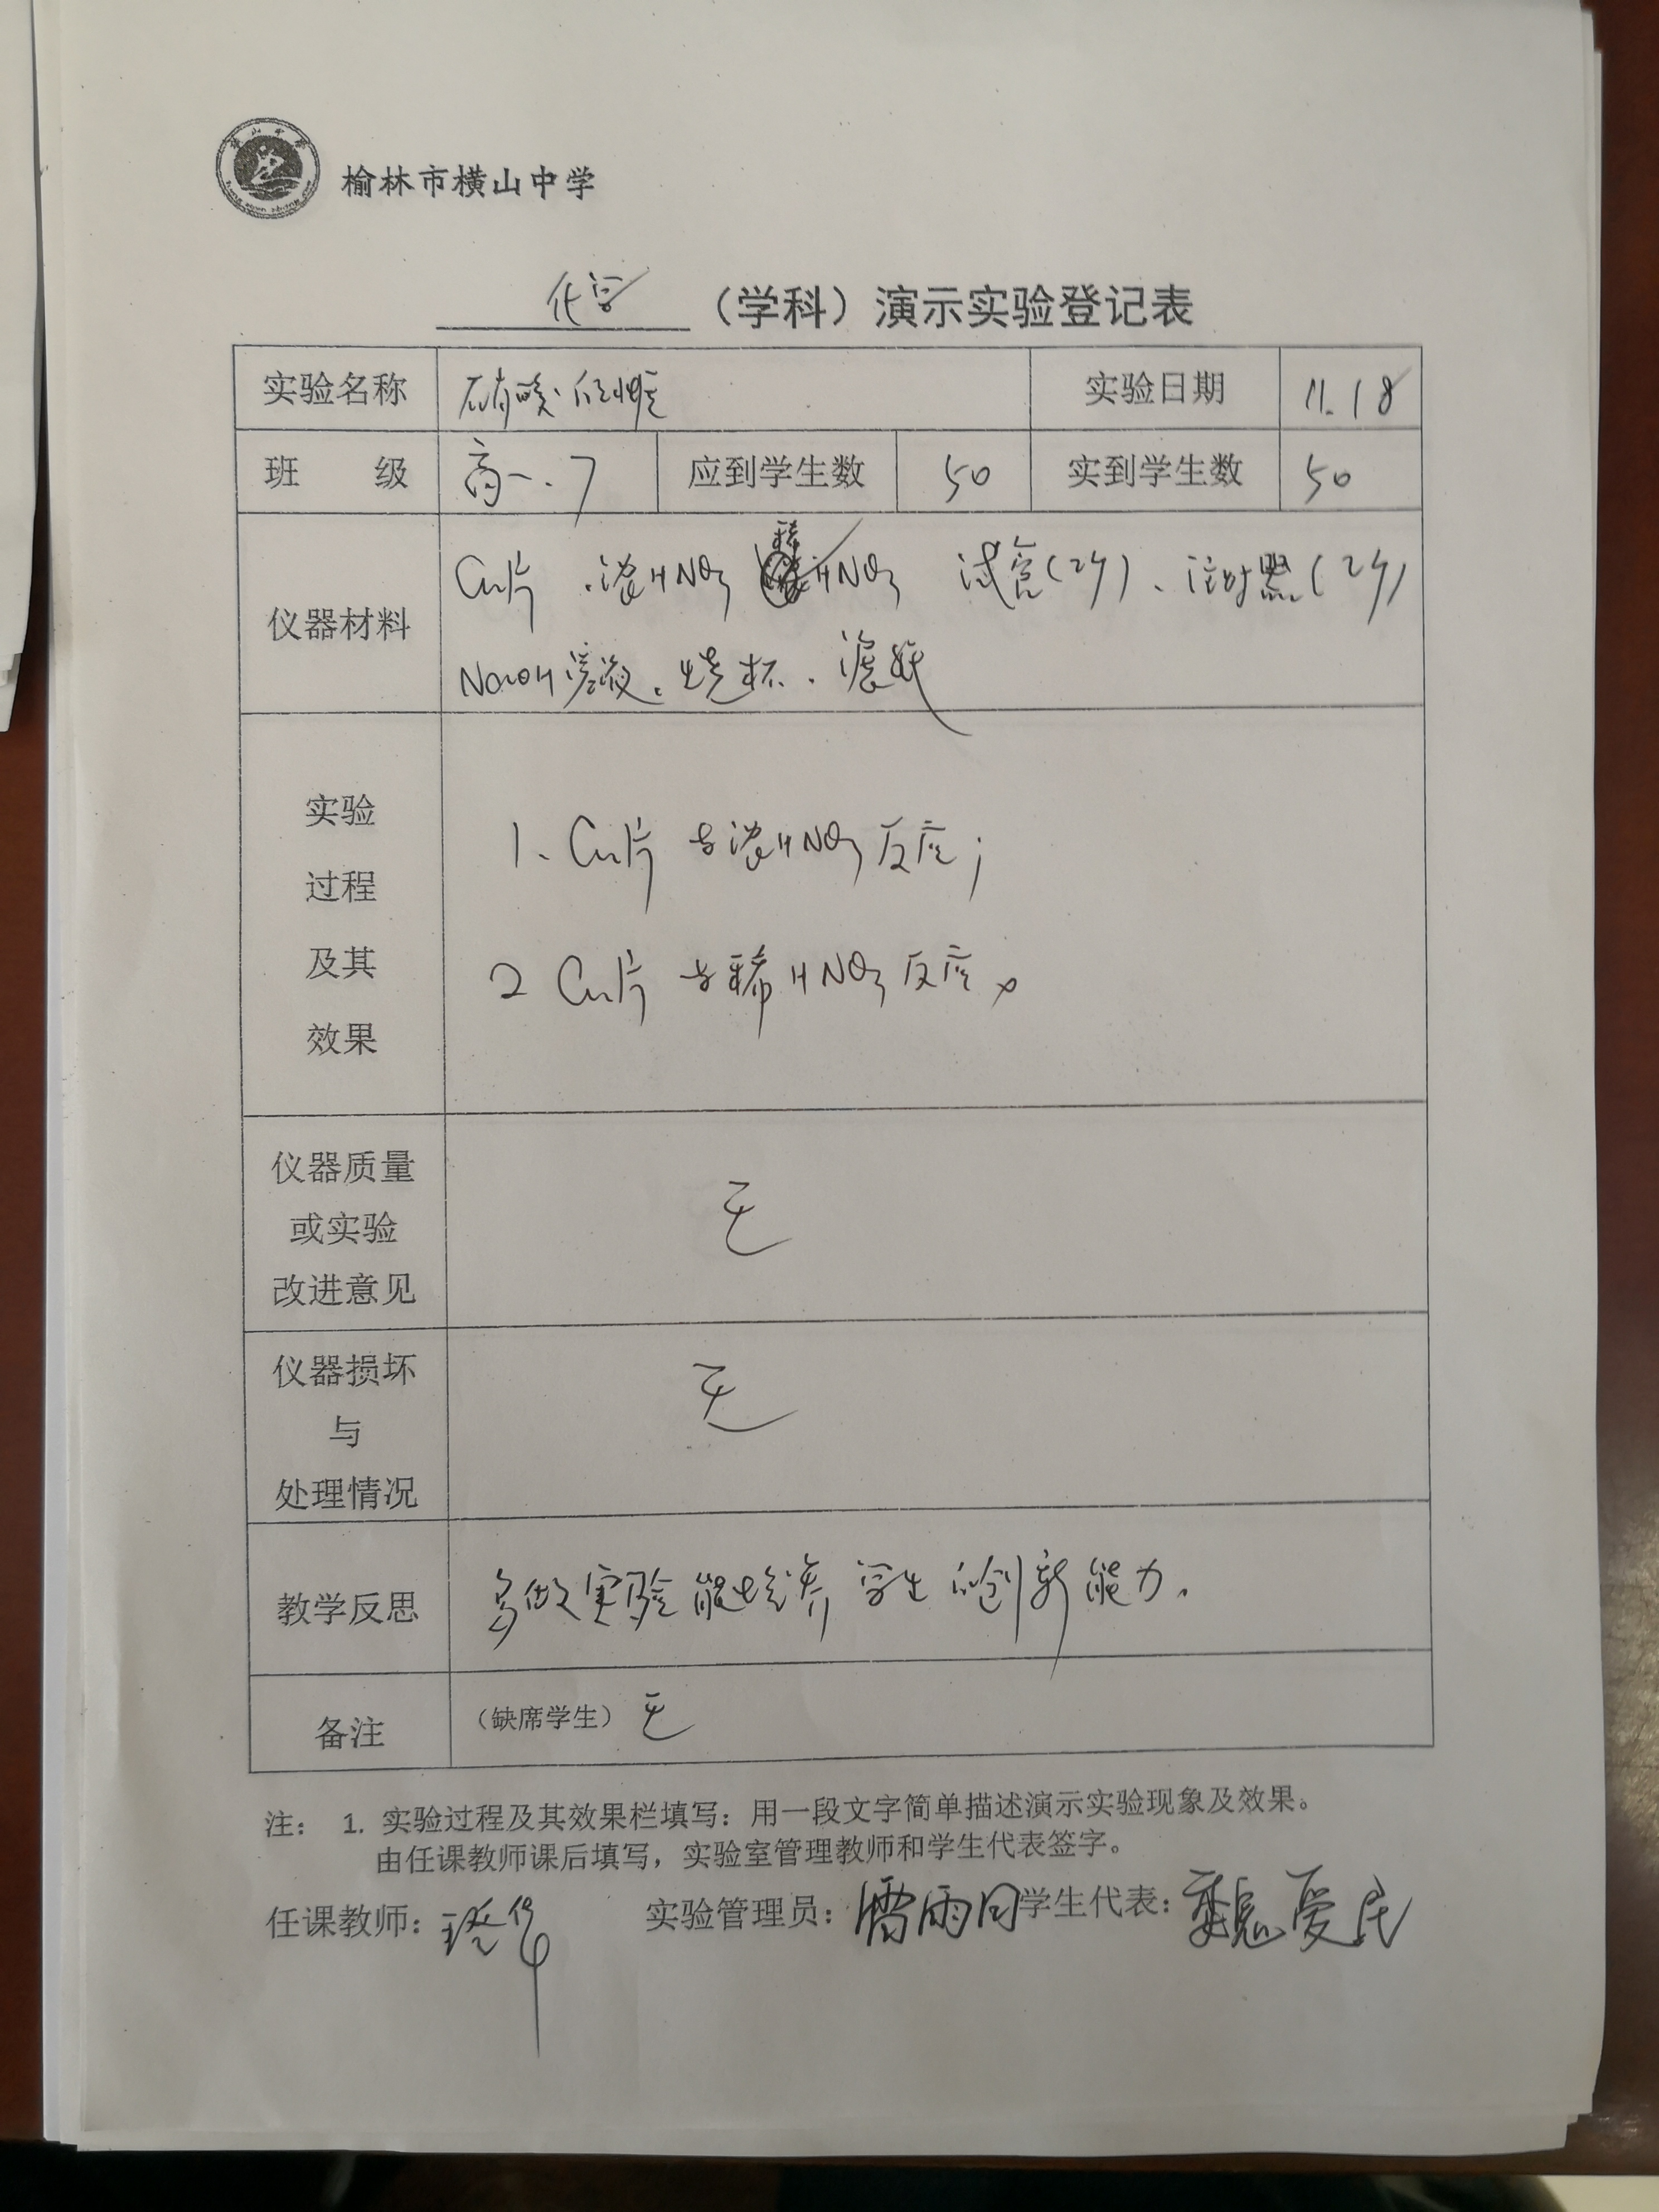 榆林市横山中学
化学（学科）演示实验登记表
实验名称 硝酸的性质 实验日期 11.18
班 级 高一.7 应到学生数 50 实到学生数 50
仪器材料
Cu片、浓HNO3 稀HNO3 试管(2个)、注射器(2个)
NaOH溶液、烧杯、滤纸
实验
过程
及其
效果
1、Cu片与浓HNO3反应；
2 Cu片与稀HNO3反应。
仪器质量
或实验
改进意见
无
仪器损坏
与
处理情况
无
教学反思 多做实验能培养学生的创新能力。
备注 （缺席学生）无
注： 1. 实验过程及其效果栏填写：用一段文字简单描述演示实验现象及效果。
由任课教师课后填写，实验室管理教师和学生代表签字。
任课教师： 实验管理员： 学生代表：魏爱民